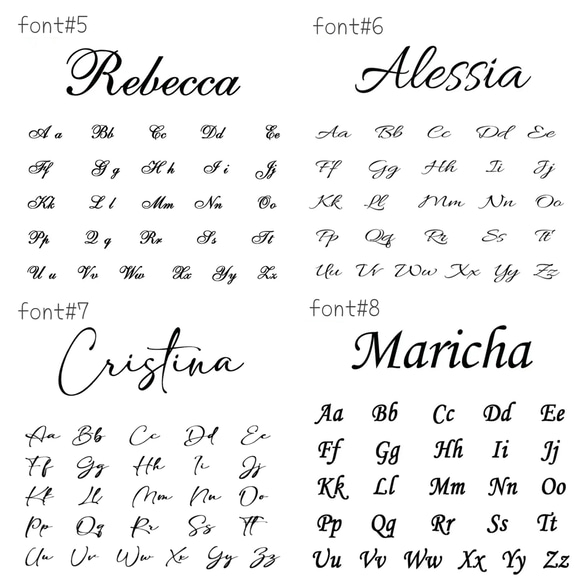 font#5
Rebecca
A a Bb Cc Dd Ee
Ff G g H h I i Jj
Kk L l Mm Nn Oo
Pp Q q Rr Ss Tt
U u Vv Ww Xx Yy Zz
font#6
Alessia
Aa Bb Cc Dd Ee
Ff Gg Hh Ii Jj
Kk Ll Mm Nn Oo
Pp Qq Rr Ss Tt
Uu Vv Ww Xx Yy Zz
font#7
Cristina
Aa Bb Cc Dd Ee
Ff Gg Hh Ii Jj
Kk Ll Mm Nn Oo
Pp Qq Rr Ss Tt
Uu Vv Ww Xx Yy Zz
font#8
Maricha
Aa Bb Cc Dd Ee
Ff Gg Hh Ii Jj
Kk Ll Mm Nn Oo
Pp Qq Rr Ss Tt
Uu Vv Ww Xx Yy Zz